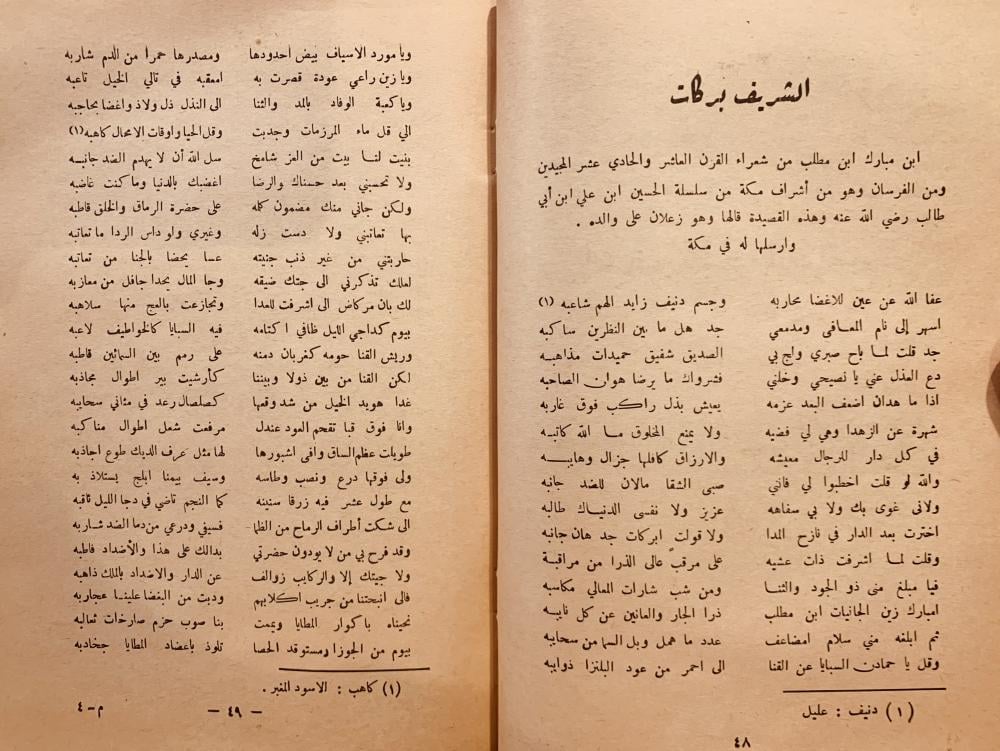 الشريف بركات
ابن مبارك ابن مطلب من شعراء القرن العاشر والحادي عشر المجيدين
ومن الفرسان وهو من أشراف مكة من سلسلة الحسين ابن علي ابن أبي
طالب رضي الله عنه وهذه القصيدة قالها وهو زعلان على والده .
وارسلها له في مكة
عفا الله عن عين للاغضا محاربه وجسم دنيف زايد الهم شاعبه (١)
اسهر إلى نام المعافى ومدمعي جد هل ما بين النظرين ساكبه
جد قلت لما باح صبري ولج بي الصديق شفيق حميدات مذاهبه
دع العذل عني يا نصيحي وخلني فشرواك ما يرضا هوان الصاحبه
اذا ما هدان اضعف البعد عزمه يعيش بذل راكب فوق غاربه
شهرة عن الزهدا وهي لي فضيه ولا يمنع المخلوق ما الله كاتبه
في كل دار للرجال معيشه والارزاق كافلها جزال وهايبه
والله لو قلت اخطبوا لي فاني صبى الشقا مالان للضد جانبه
ولانى غوى بك ولا بي سفاهه عزيز ولا نفسى الدنياك طالبه
اخترت بعد الدار في نازح المدا ولا قولت ابركات جد هان جانبه
وقلت لما اشرفت ذات عشيه على مرقب عالى الذرا من مراقبة
فيا مبلغ منى ذو الجود والثنا ومن شب شارات المعالي مكاسبه
امبارك زبن الجانيات ابن مطلب ذرا الجار والعانين عن كل نايبه
ثم ابلغه مني سلام امضاعف عدد ما همل وبل السما من سحايبه
وقل يا حمادن السبايا عن القنا الى احمر من عود البلنزا ذوايبه
(١) دنيف : عليل
٤٨
ويا مورد الاسياف بيض احدودها ومصدرها حمرا من الدم شاربه
ويا زين راعي عودة قصرت به امعقبه في تالي الخيل تاعبه
ويا كعبة الوفاد بالمد والثنا الى النذل ذل ولاذ واغضا بحاجبه
الي قل ماء المرزمات وجدبت وقل الحيا واوقات الامحال كاهبه (١)
بنيت لنا بيت من العز شامخ سل الله أن لا يهدم الضد جانبه
ولا تحسبني بعد حسناك والرضا اغضبك بالدنيا وما كنت غاضبه
ولكن جاني منك مضمون كلمه على حضرة الرماق والخلق قاطبه
بها تعاتبني ولا دست زله وغيري ولو داس الردا ما تعاتبه
حاربتني من غير ذنب جنيته عسا يحضا بالجنا من تعاتبه
لعلك تذكرني الى جتك ضيقه وجا المال يحدا جافل من معازبه
لك بان مركاض الى اشرفت للعدا وتجازعت بالعج منها سلاهبه
بيوم كداجي الليل ظافي اكتامه فيه السبايا كالخواطيف لاعبه
وريش القنا حومه كغربان دمنه على رمم بين السمائين قاطبه
لكن القنا من بين ذولا وبيننا كأرشيت بير اطوال مجاذبه
غدا هوبد الخيل من شد وقعها كصلصال رعد في مثاني سحايبه
وانا فوق قبا تقحم العود عندل مرفعت شمل اطوال مناكبه
طويلات عظم الساق وافى اشبورها لها مثل عرف الديك طوع اجاذبه
ولى فوقها درع ونصب وطاسه وسيف بيمنا ابلج يستلاذ به
مع طول عشر فيه زرقا سنينه كما النجم تاضي في دجا الليل ثاقبه
الى شكت أطراف الرماح من الظما فسيفي ودرعي من دما الضد شاربه
وقد فرح بي من لا يودون حضرتي بدالك على هذا والأضداد قاطبه
ولا جيتك إلا والركايب زوالف عن الدار والاضداد بالملك ذاهبه
فالى انبحتنا من جريب اكلابهم ودبت من البغضا علينا عجاربه
نحيناه باكوار المطايا ويممت بنا صوب حزم صارخات ثعالبه
بيوم من الجوزا ومستوقد الحصا تلوذ باعضاد المطايا جخادبه
(١) كاهب : الاسود المغبر .
— ٤٩ —
م - ٤